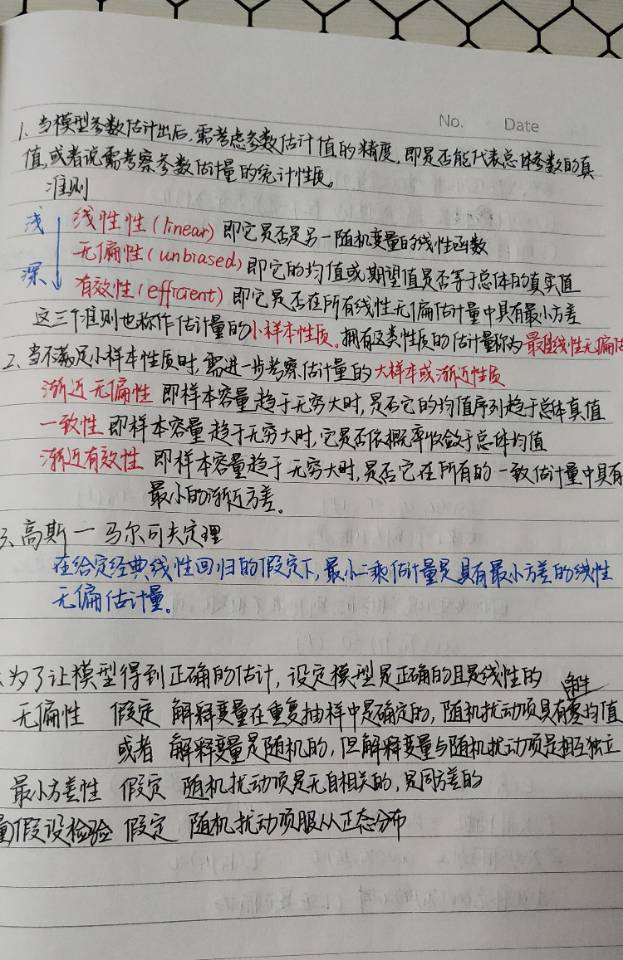 No. Date
1、当模型参数估计出后,需考虑参数估计值的精度,即是否能代表总体参数的真
值,或者说需考察参数估计量的统计性质。
准则
浅 线性性(linear) 即它是否是另一随机变量的线性函数
无偏性(unbiased) 即它的均值或期望值是否等于总体的真实值
深 有效性(efficient) 即它是否在所有线性无偏估计量中具有最小方差
这三个准则也称作估计量的小样本性质。拥有这类性质的估计量称为最佳线性无偏估
2、当不满足小样本性质时,需进一步考察估计量的大样本或渐近性质
渐近无偏性 即样本容量趋于无穷大时,是否它的均值序列趋于总体真值
一致性 即样本容量趋于无穷大时,它是否依概率收敛于总体均值
渐近有效性 即样本容量趋于无穷大时,是否它在所有的一致估计量中具有
最小的渐近方差。
3、高斯一马尔可夫定理
在给定经典线性回归的假定下,最小二乘估计量是具有最小方差的线性
无偏估计量。
为了让模型得到正确的估计,设定模型是正确的且是线性的
无偏性 假定 解释变量在重复抽样中是确定的,随机扰动项具有零均值
或者 解释变量是随机的,但解释变量与随机扰动项是相互独立
最小方差性 假定 随机扰动项是无自相关的,是同方差的
假设检验 假定 随机扰动项服从正态分布